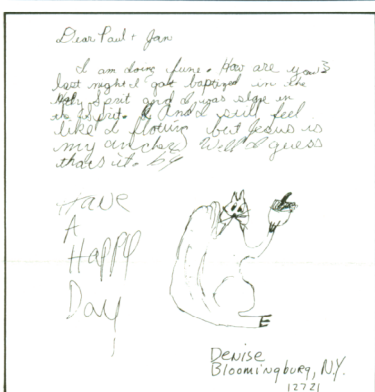 Dear Paul + Jan
I am doing fine. How are you's
last night I got baptized in the
Holy Spirit and I was slain in
the Spirit. And I still feel
like I floting but Jesus is
my anchor Well I guess
thats it. by
Have
A
Happy
Day
Denise
Bloomingburg, N.Y.
12721